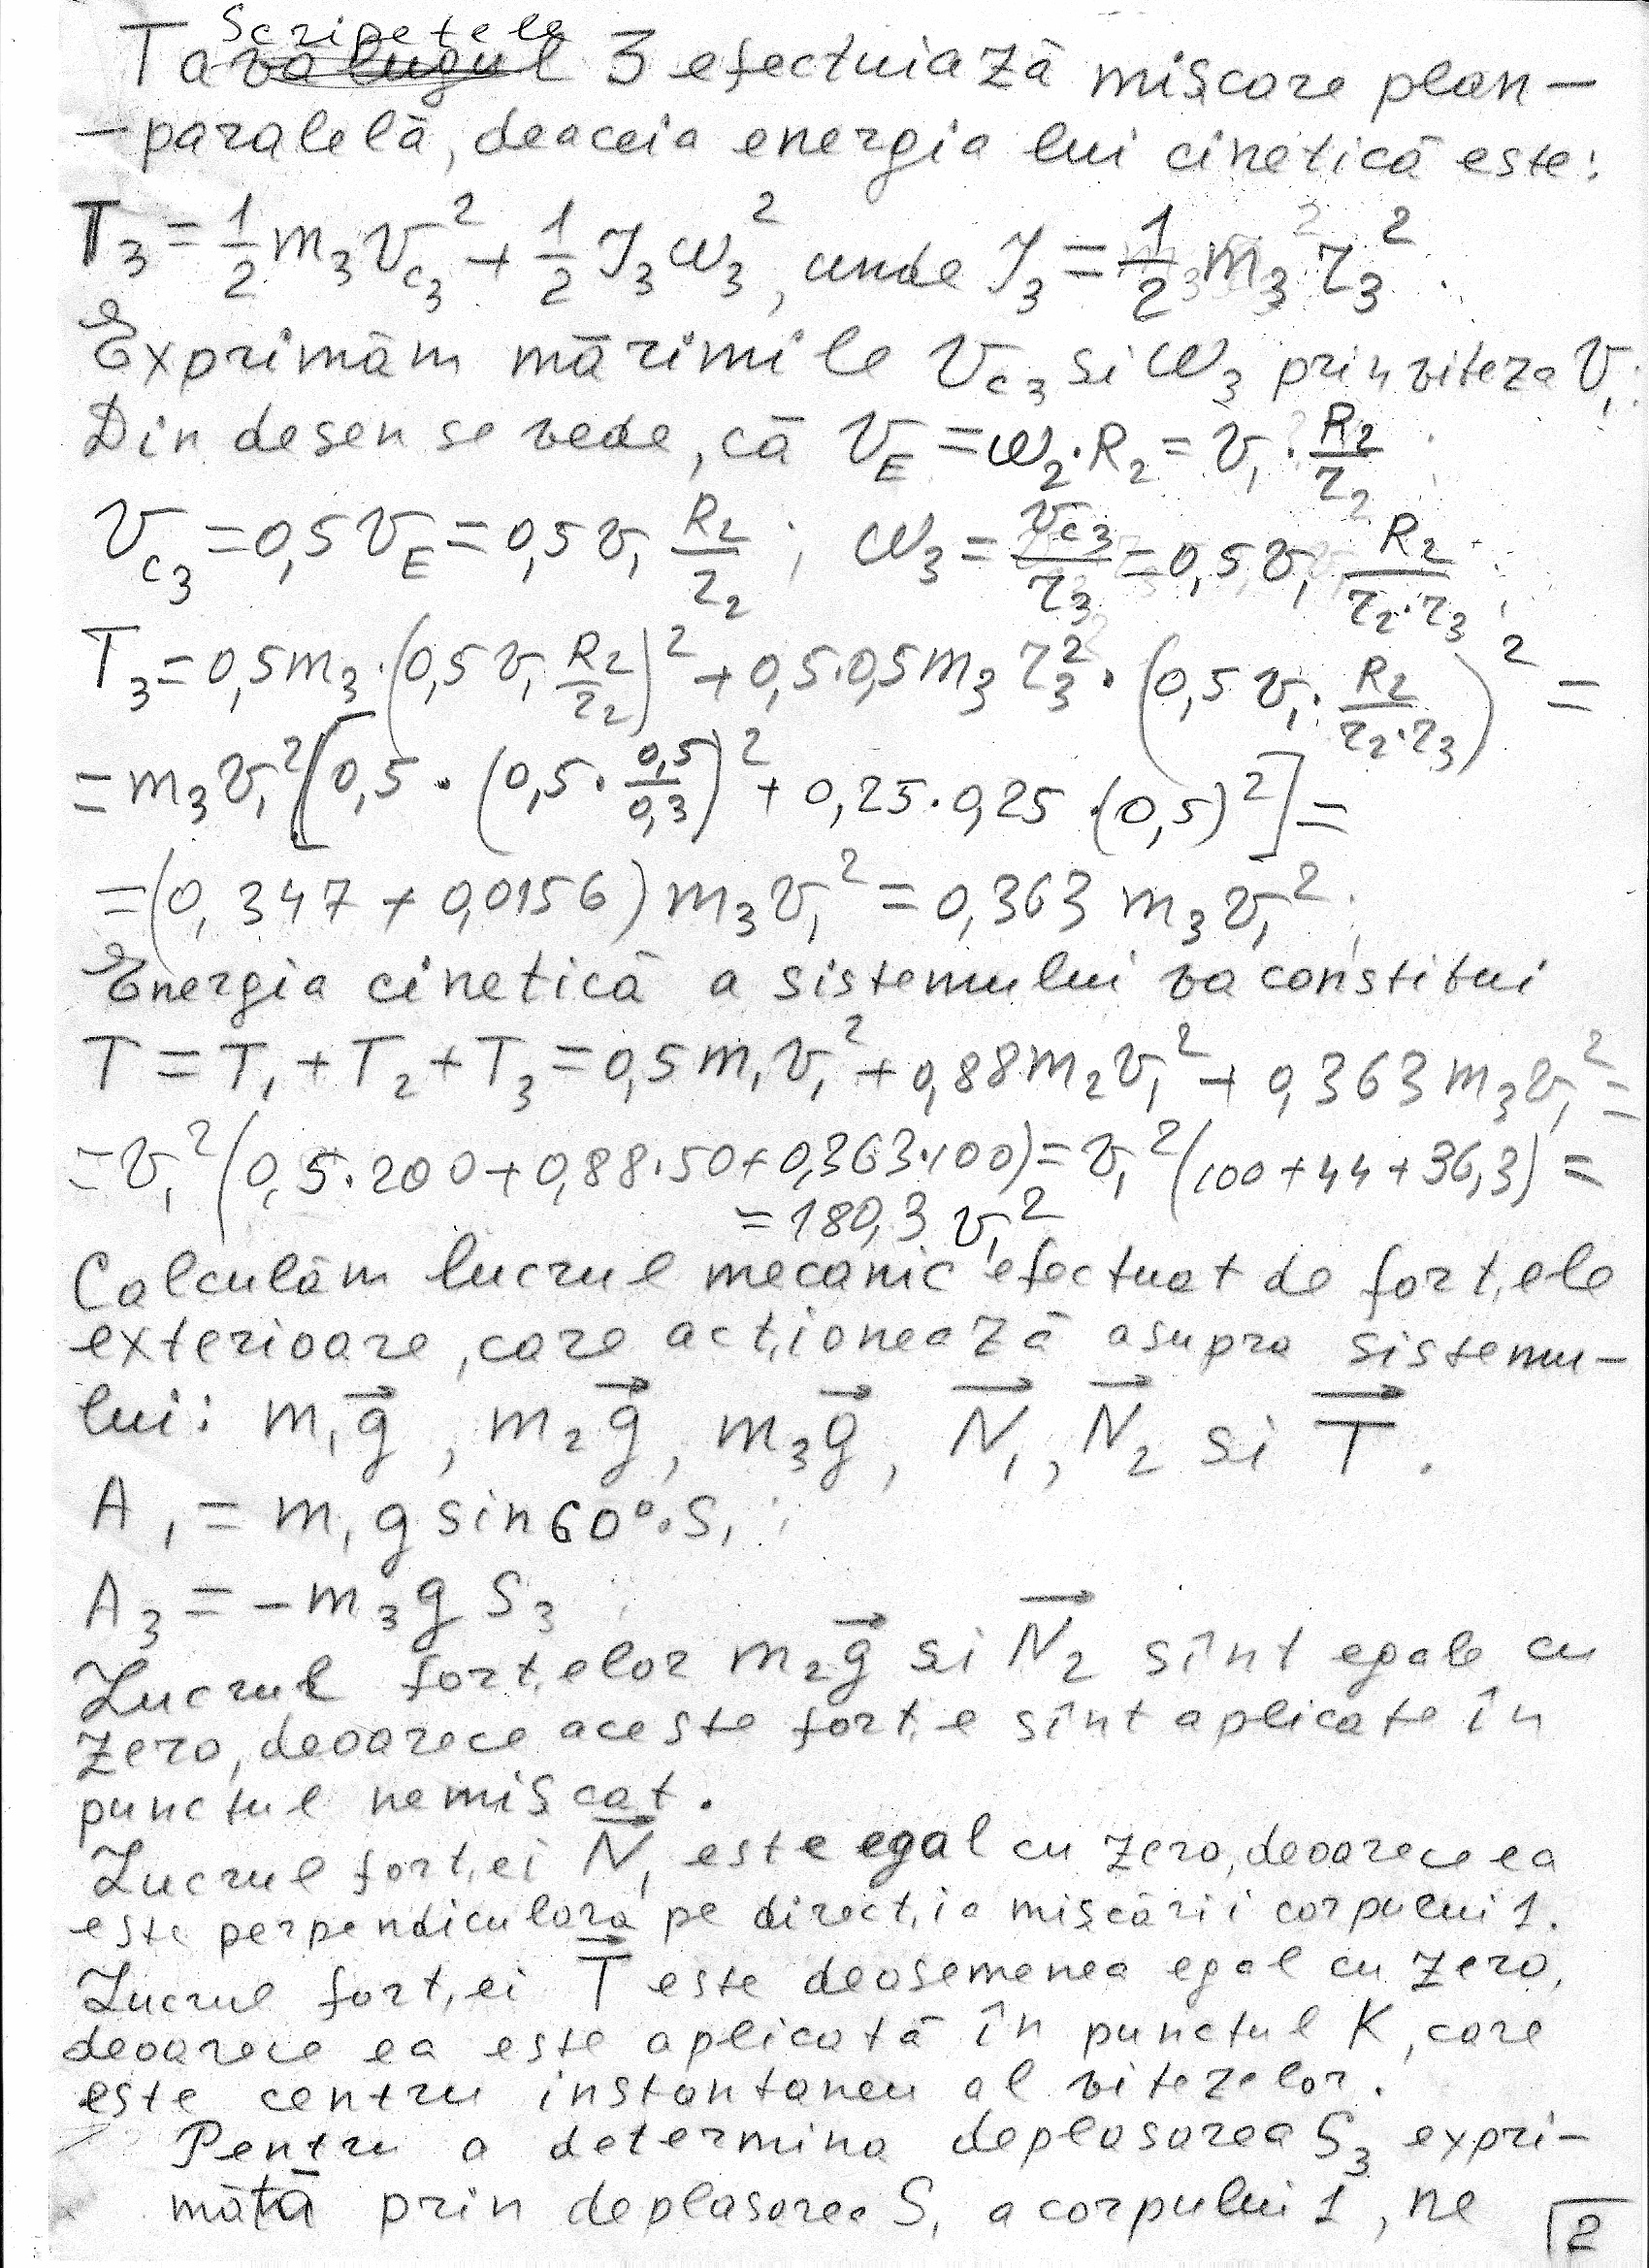 Scripetele
Tavalugul 3 efectuiază mișcare plan-
-paralelă, deaceia energia lui cinetică este:
T₃ = 1/2 m₃ v_c₃² + 1/2 J₃ ω₃², unde J₃ = 1/2 m₃ r₃².
Exprimăm mărimile v_c₃ si ω₃ prin viteza v₁:
Din desen se vede, că v_E = ω₂·R₂ = v₁·R₂/r₂;
v_c₃ = 0,5 v_E = 0,5 v₁ R₂/r₂; ω₃ = v_c₃/r₃ = 0,5 v₁ R₂/(r₂·r₃);
T₃ = 0,5 m₃·(0,5 v₁ R₂/r₂)² + 0,5·0,5 m₃ r₃²·(0,5 v₁·R₂/(r₂·r₃))² =
= m₃ v₁² [0,5·(0,5·0,5/0,3)² + 0,25·0,25·(0,5)²] =
= (0,347 + 0,0156) m₃ v₁² = 0,363 m₃ v₁²;
Energia cinetică a sistemului va constitui
T = T₁ + T₂ + T₃ = 0,5 m₁ v₁² + 0,88 m₂ v₁² + 0,363 m₃ v₁² =
= v₁² (0,5·200 + 0,88·50 + 0,363·100) = v₁² (100 + 44 + 36,3) =
= 180,3 v₁²
Calculăm lucrul mecanic efectuat de forț,ele
exterioare, care act,ionează asupra sistemu-
lui: m₁g⃗, m₂g⃗, m₃g⃗, N⃗₁, N⃗₂ si T⃗.
A₁ = m₁ g sin60°·S₁;
A₃ = -m₃ g S₃
Lucrul fort,elor m₂g⃗ si N⃗₂ sînt egale cu
zero, deoarece aceste fort,e sînt aplicate în
punctul nemișcat.
Lucrul fort,ei N⃗₁ este egal cu zero, deoarece ea
este perpendiculară pe direct,ia mișcării corpului 1.
Lucrul fort,ei T⃗ este deosemenea egal cu zero,
deoarece ea este aplicată în punctul K, care
este centru instantaneu al vitezelor.
Pentru a determina deplasarea S₃ expri-
mătă prin deplasarea S₁ a corpului 1, ne
2